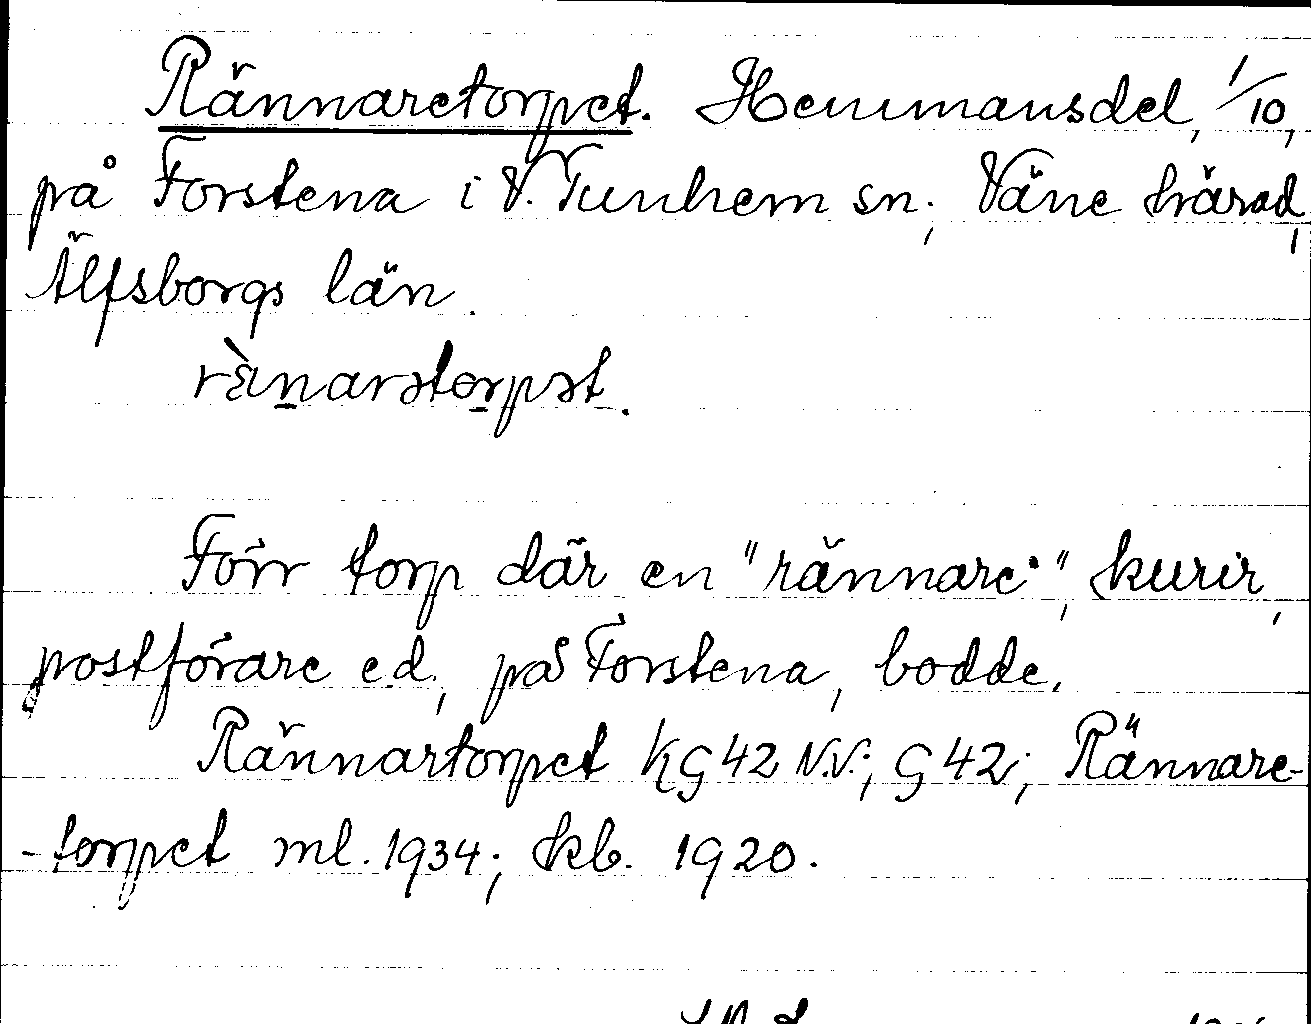 Rännaretorpet. Hemmansdel, 1/10,
på Forstena i V. Tunhem sn; Väne härad,
Älfsborgs län.
rä̀narətorpət.
Förr torp där en "rännare", kurir,
postförare e.d., på Forstena, bodde.
Rännartorpet KG 42 N.V.; G 42; Rännare-
-torpet ml. 1934; kb. 1920.